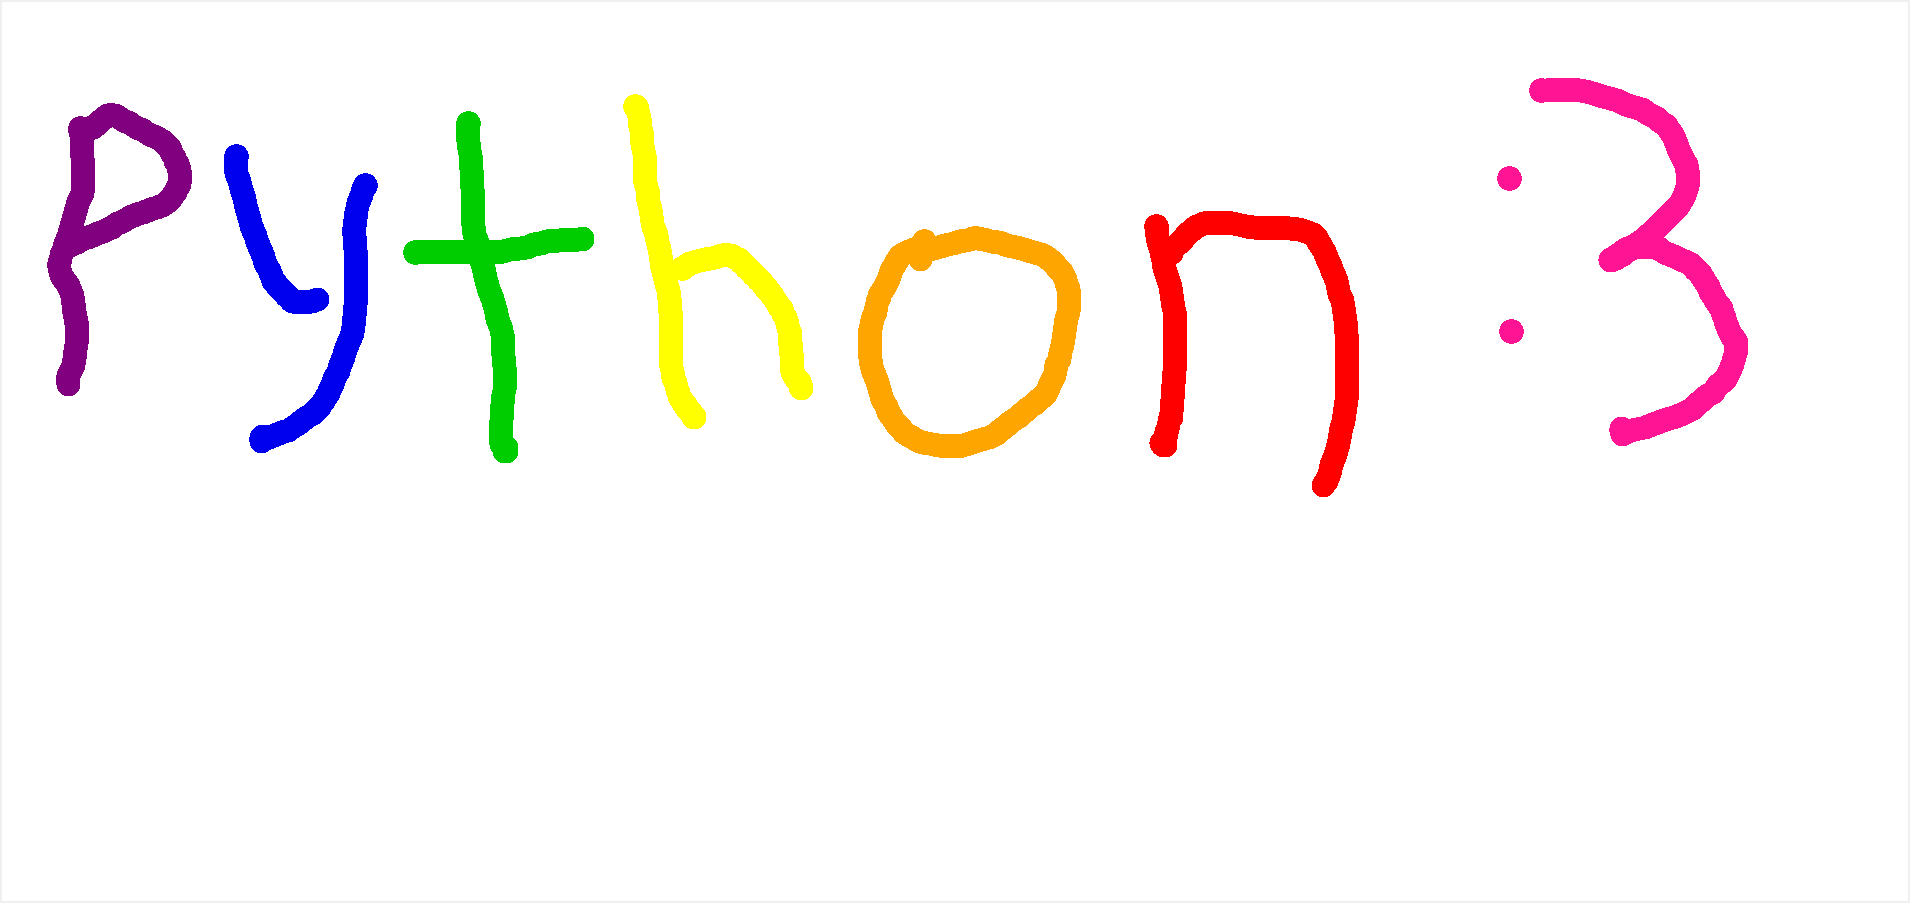 Python :3